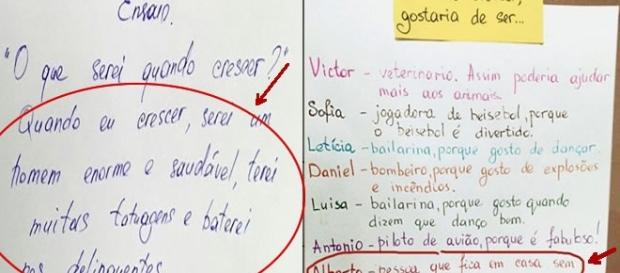 Ensaio.
"O que serei quando crescer?"
Quando eu crescer, serei um
homem enorme e saudável, terei
muitas tatuagens e baterei
nos delinquentes
gostaria de ser...
Victor - veterinario. Assim poderia ajudar
mais aos animais.
Sofia - jogadora de beisebol, porque
o beisebol é divertido.
Letícia - bailarina, porque gosto de dançar.
Daniel - bombeiro, porque gosto de explosões
e incêndios.
Luisa - bailarina, porque gosto quando
dizem que danço bem.
Antonio - piloto de avião, porque é fabuloso!
Alberto - pessoa que fica em casa sem